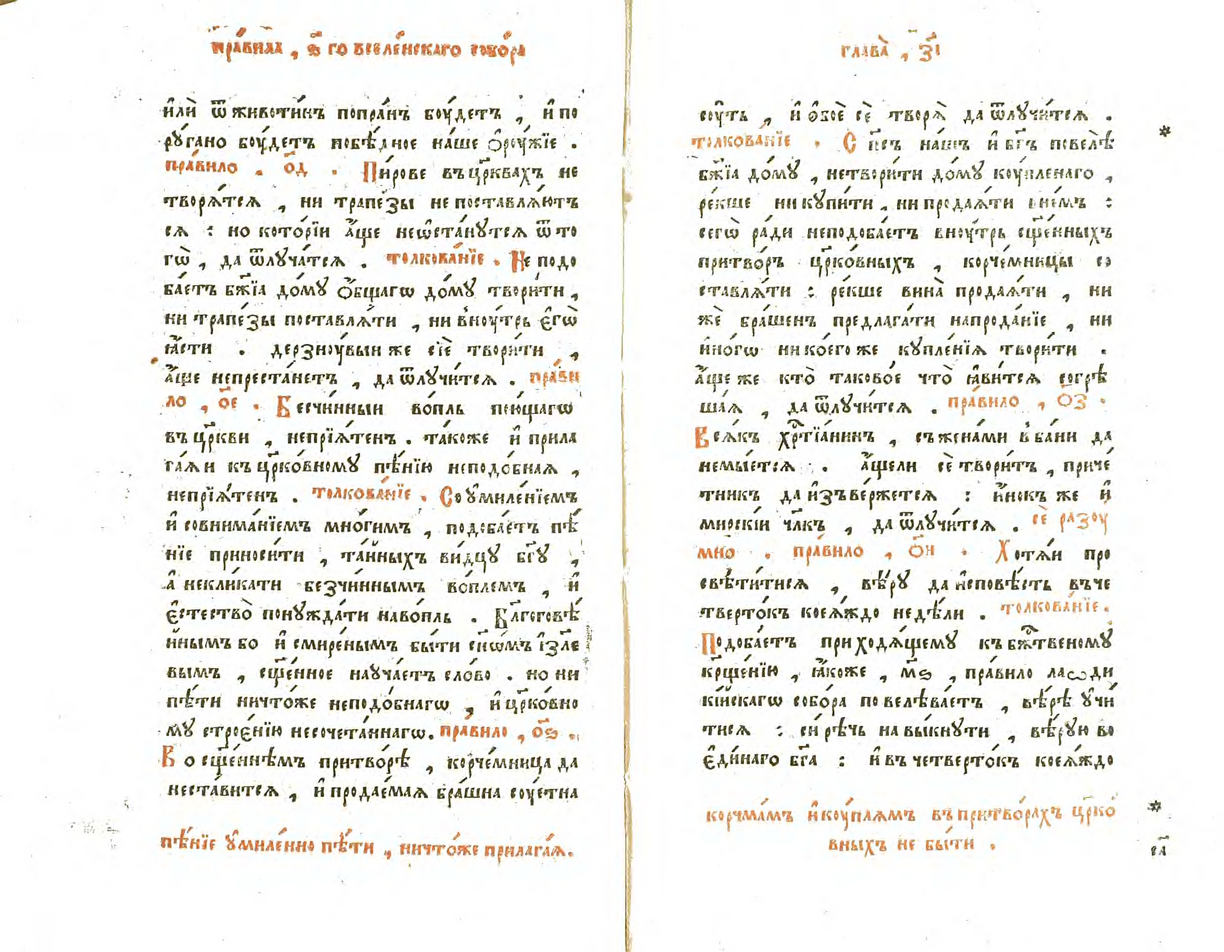 пра́вила , ѕ҃ го вселе́нскаго собо́ра
и҆лѝ ѿ живо́тинъ попра́нъ бꙋ́детъ , и҆ по
рꙋ́гано бꙋ́детъ побѣ́дное на́ше ѻ҆рꙋ́жїе .
пра́вило . о҃д . Пи́рове въ цр҃квахъ не
творѧ́тсѧ , ни трапе́зы не поставлѧ́ютъ
сѧ : но кото́рїи а҆́ще неѡста́нꙋтсѧ ѿ то
гѡ̀ , да ѿлꙋча́тсѧ . толкова́нїе . Не подо
ба́етъ бж҃їа до́мꙋ ѻ҆́бщагѡ до́мꙋ твори́ти ,
ни трапе́зы поставлѧ́ти , ни внꙋ́трь є҆гѡ̀
ꙗ҆́сти . дерзнꙋ́выи же сїѐ твори́ти ,
а҆́ще непреста́нетъ , да ѿлꙋчи́тсѧ . пра́ви
ло , о҃е . Бесчи́нныи во́пль пою́щагѡ
въ цр҃кви , непрїѧ́тенъ . та́коже и҆ прила
га́ѧи къ цр҃ко́вномꙋ пѣ́нїю неподо́бнаѧ ,
непрїѧ́тенъ . толкова́нїе . Со ᲂу҆миле́нїемъ
и҆ совнима́нїемъ мно́гимъ , подоба́етъ пѣ́
нїе приноси́ти , та́йныхъ ви́дцꙋ бг҃ꙋ ,
а҆ некли́кати безчи́ннымъ во́племъ , и҆
є҆стество̀ понꙋжда́ти наво́пль . Бл҃гоговѣ́
йнымъ бо и҆ смире́нымъ бы́ти сн҃ѡ́мъ і҆зл҃е
вымъ , сщ҃е́нное наꙋча́етъ сло́во . но ни
пѣ́ти ничто́же неподо́бнагѡ , и҆ цр҃ко́вно
мꙋ строе́нїю несочета́ннагѡ . пра́вило , о҃ѕ .
Во сщ҃е́ннѣмъ притво́рѣ , корче́мница да
неста́витсѧ , и҆ продае́маѧ бра́шна сꙋ́етна
пѣ́нїе ᲂу҆миле́нно пѣ́ти , ничто́же прилага́ѧ .
глава̀ , з҃і
сꙋ́ть , и҆ ѻ҆боѐ сѐ творѧ̀ да ѿлꙋчи́тсѧ .
толкова́нїе . Сп҃съ на́шъ и҆ бг҃ъ повелѣ̀
бж҃їа до́мꙋ , нетвори́ти до́мꙋ кꙋ́пленаго ,
ре́кше ни кꙋпи́ти , ни продаѧ́ти в не́мъ :
сегѡ̀ ра́ди неподоба́етъ внꙋ́трь сщ҃е́нныхъ
притво́ръ цр҃ко́вныхъ , корче́мницы со
ставлѧ́ти : ре́кше вина̀ продаѧ́ти , ни
жѐ бра́шенъ предлага́ти напрода́нїе , ни
и҆но́гѡ ни ко́егоже кꙋпле́нїѧ твори́ти .
а҆́ще же кто̀ таково́е что̀ ꙗ҆ви́тсѧ согрѣ
ша́ѧ , да ѿлꙋчи́тсѧ . пра́вило , о҃з .
Всѧ́къ хрⷭ҇тїа́нинъ , съ жена́ми в ба́ни да
немы́етсѧ . а҆́щели сѐ твори́тъ , приче́
тникъ да и҆зъве́ржетсѧ : и҆́нокъ же и҆
мирскі́и чл҃къ , да ѿлꙋчи́тсѧ . сѐ разꙋ́
мно . пра́вило , о҃и . Хотѧ́и про
свѣти́тисѧ , вѣ́рꙋ да и҆сповѣ́сть въ че
тверто́къ коеѧ́ждо недѣ́ли . толкова́нїе .
Подоба́етъ приходѧ́щемꙋ къ бжⷭ҇твеномꙋ
крщ҃е́нїю , ꙗ҆́коже , м҃ѕ , пра́вило лаѡди
кі́йскагѡ собо́ра повелѣва́етъ , вѣ́рѣ ᲂу҆чи́
тисѧ : си́ рѣчь навы́кнꙋти , вѣ́рꙋю во
є҆ди́наго бг҃а : и҆ въ четверто́къ коеѧ́ждо
корчма́мъ и҆ кꙋ́плѧмъ въ притво́рахъ цр҃ко́
вныхъ не бы́ти .